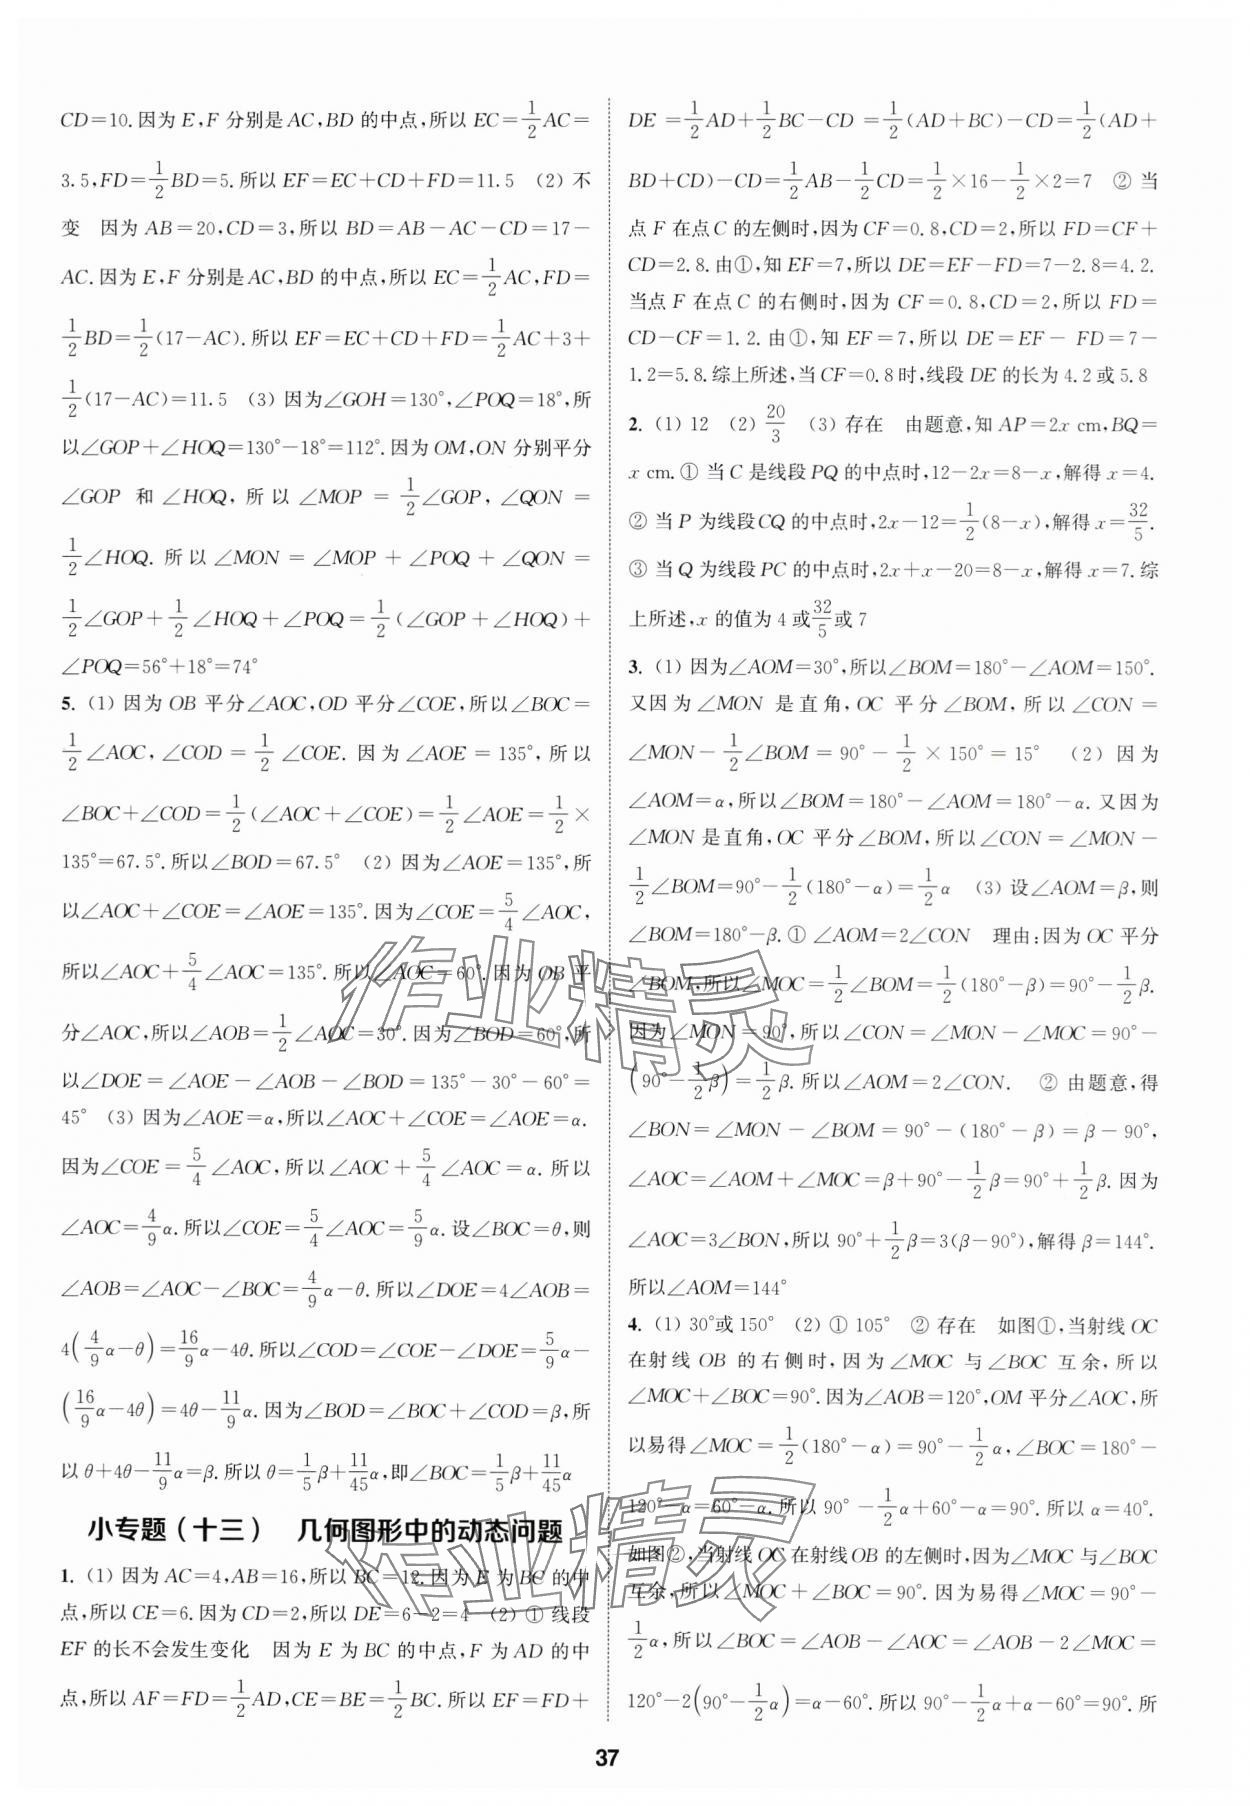 CD=10.因为E,F分别是AC,BD的中点,所以EC=1/2AC=
3.5,FD=1/2BD=5.所以EF=EC+CD+FD=11.5 (2) 不
变 因为AB=20,CD=3,所以BD=AB-AC-CD=17-
AC.因为E,F分别是AC,BD的中点,所以EC=1/2AC,FD=
1/2BD=1/2(17-AC).所以EF=EC+CD+FD=1/2AC+3+
1/2(17-AC)=11.5 (3) 因为∠GOH=130°,∠POQ=18°,所
以∠GOP+∠HOQ=130°-18°=112°.因为OM,ON分别平分
∠GOP和∠HOQ,所以∠MOP=1/2∠GOP,∠QON=
1/2∠HOQ.所以∠MON=∠MOP+∠POQ+∠QON=
1/2∠GOP+1/2∠HOQ+∠POQ=1/2(∠GOP+∠HOQ)+
∠POQ=56°+18°=74°
5. (1) 因为OB平分∠AOC,OD平分∠COE,所以∠BOC=
1/2∠AOC,∠COD=1/2∠COE.因为∠AOE=135°,所以
∠BOC+∠COD=1/2(∠AOC+∠COE)=1/2∠AOE=1/2×
135°=67.5°.所以∠BOD=67.5° (2) 因为∠AOE=135°,所
以∠AOC+∠COE=∠AOE=135°.因为∠COE=5/4∠AOC,
所以∠AOC+5/4∠AOC=135°.所以∠AOC=60°.因为OB平
分∠AOC,所以∠AOB=1/2∠AOC=30°.因为∠BOD=60°,所
以∠DOE=∠AOE-∠AOB-∠BOD=135°-30°-60°=
45° (3) 因为∠AOE=α,所以∠AOC+∠COE=∠AOE=α.
因为∠COE=5/4∠AOC,所以∠AOC+5/4∠AOC=α.所以
∠AOC=4/9α.所以∠COE=5/4∠AOC=5/9α.设∠BOC=θ,则
∠AOB=∠AOC-∠BOC=4/9α-θ.所以∠DOE=4∠AOB=
4(4/9α-θ)=16/9α-4θ.所以∠COD=∠COE-∠DOE=5/9α-
(16/9α-4θ)=4θ-11/9α.因为∠BOD=∠BOC+∠COD=β,所
以θ+4θ-11/9α=β.所以θ=1/5β+11/45α,即∠BOC=1/5β+11/45α
小专题(十三) 几何图形中的动态问题
1. (1) 因为AC=4,AB=16,所以BC=12.因为E为BC的中
点,所以CE=6.因为CD=2,所以DE=6-2=4 (2) ① 线段
EF的长不会发生变化 因为E为BC的中点,F为AD的中
点,所以AF=FD=1/2AD,CE=BE=1/2BC.所以EF=FD+
DE=1/2AD+1/2BC-CD=1/2(AD+BC)-CD=1/2(AD+
BD+CD)-CD=1/2AB-1/2CD=1/2×16-1/2×2=7 ② 当
点F在点C的左侧时,因为CF=0.8,CD=2,所以FD=CF+
CD=2.8.由①,知EF=7,所以DE=EF-FD=7-2.8=4.2.
当点F在点C的右侧时,因为CF=0.8,CD=2,所以FD=
CD-CF=1.2.由①,知EF=7,所以DE=EF-FD=7-
1.2=5.8.综上所述,当CF=0.8时,线段DE的长为4.2或5.8
2. (1) 12 (2) 20/3 (3) 存在 由题意,知AP=2x cm,BQ=
x cm.① 当C是线段PQ的中点时,12-2x=8-x,解得x=4.
② 当P为线段CQ的中点时,2x-12=1/2(8-x),解得x=32/5.
③ 当Q为线段PC的中点时,2x+x-20=8-x,解得x=7.综
上所述,x的值为4或32/5或7
3. (1) 因为∠AOM=30°,所以∠BOM=180°-∠AOM=150°.
又因为∠MON是直角,OC平分∠BOM,所以∠CON=
∠MON-1/2∠BOM=90°-1/2×150°=15° (2) 因为
∠AOM=α,所以∠BOM=180°-∠AOM=180°-α.又因为
∠MON是直角,OC平分∠BOM,所以∠CON=∠MON-
1/2∠BOM=90°-1/2(180°-α)=1/2α (3) 设∠AOM=β,则
∠BOM=180°-β.① ∠AOM=2∠CON 理由:因为OC平分
∠BOM,所以∠MOC=1/2∠BOM=1/2(180°-β)=90°-1/2β.
因为∠MON=90°,所以∠CON=∠MON-∠MOC=90°-
(90°-1/2β)=1/2β.所以∠AOM=2∠CON. ② 由题意,得
∠BON=∠MON-∠BOM=90°-(180°-β)=β-90°,
∠AOC=∠AOM+∠MOC=β+90°-1/2β=90°+1/2β.因为
∠AOC=3∠BON,所以90°+1/2β=3(β-90°),解得β=144°.
所以∠AOM=144°
4. (1) 30°或150° (2) ① 105° ② 存在 如图①,当射线OC
在射线OB的右侧时,因为∠MOC与∠BOC互余,所以
∠MOC+∠BOC=90°.因为∠AOB=120°,OM平分∠AOC,所
以易得∠MOC=1/2(180°-α)=90°-1/2α,∠BOC=180°-
120°-α=60°-α.所以90°-1/2α+60°-α=90°.所以α=40°.
如图②,当射线OC在射线OB的左侧时,因为∠MOC与∠BOC
互余,所以∠MOC+∠BOC=90°.因为易得∠MOC=90°-
1/2α,所以∠BOC=∠AOB-∠AOC=∠AOB-2∠MOC=
120°-2(90°-1/2α)=α-60°.所以90°-1/2α+α-60°=90°.所
37
作业精灵
作业精灵